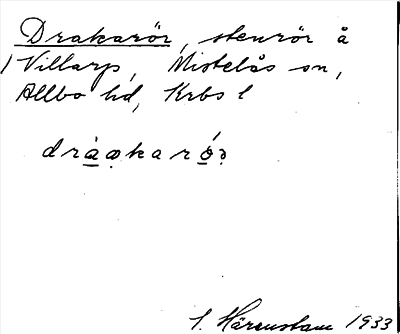 Drakarör, stenrör å
/Villarp, Mistelås sn,
Allbo hd, Krbs l
S. Härenstam 1933